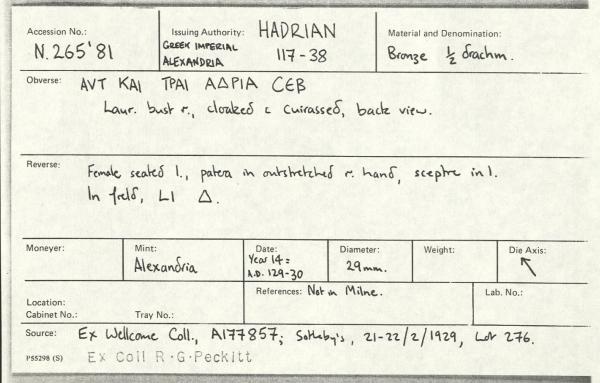 Accession No.: Issuing Authority: HADRIAN Material and Denomination:
N.265'81 GREEK IMPERIAL ALEXANDRIA 117-38 Bronze ½ drachm.
Obverse: ΑVΤ ΚΑΙ ΤΡΑΙ ΑΔΡΙΑ CΕΒ
Laur. bust r., cloaked c cuirassed, back view.
Reverse: Female seated l., patera in outstretched r. hand, sceptre in l.
In field, LI Δ.
Moneyer: Mint: Date: Diameter: Weight: Die Axis:
Alexandria Year 14 = A.D. 129-30 29mm. ↖
Location: References: Not in Milne. Lab. No.:
Cabinet No.: Tray No.:
Source: Ex Wellcome Coll., A177857; Sotheby's, 21-22/2/1929, Lot 276.
P55298 (S) Ex Coll R.G.Peckitt